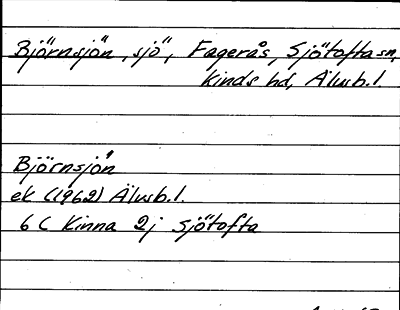 Björnsjön, sjö, Fagerås, Sjötofta sn,
Kinds hd, Älvsb.l.
Björnsjön
ek (1962) Älvsb.l.
6 C Kinna 2j Sjötofta